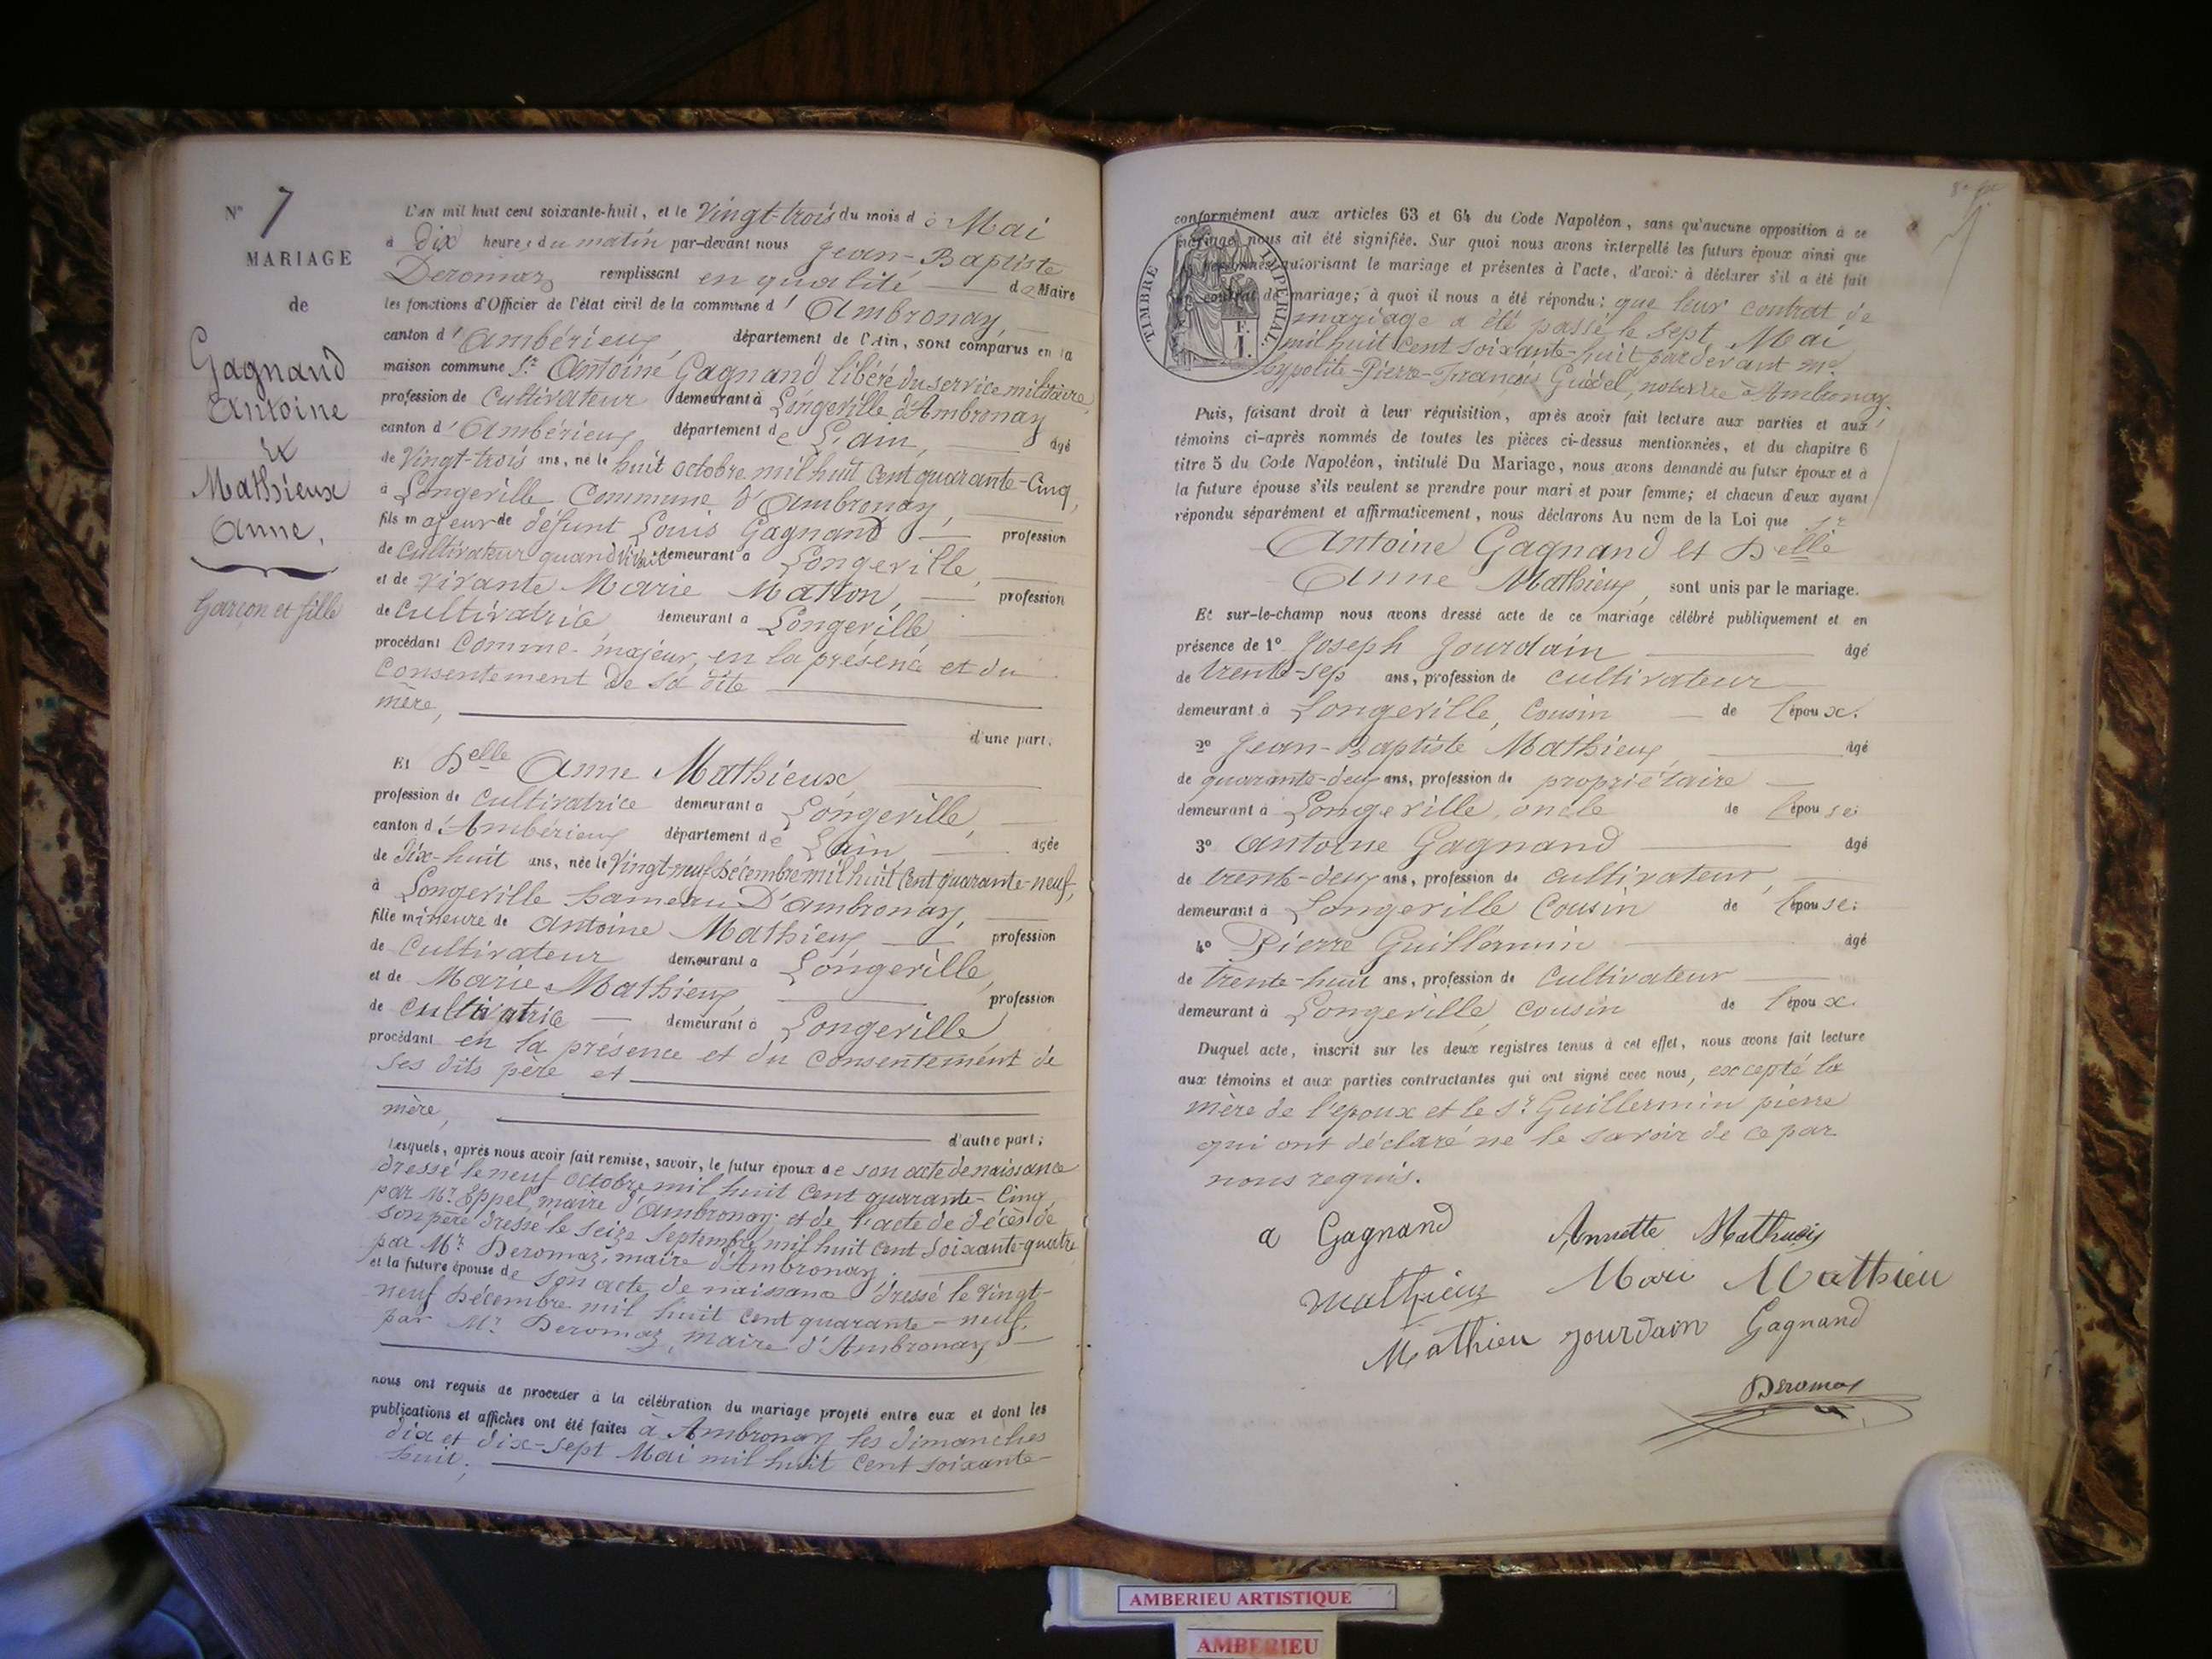 N° 7
MARIAGE
de
Gagnand
Antoine
et
Mathieux
Anne,
Garçon et fille
L'AN mil huit cent soixante-huit, et le Vingt-trois du mois de Mai
à Dix heures du matin par-devant nous Jean-Baptiste
Deromaz remplissant en qualité de Maire
les fonctions d'Officier de l'état civil de la commune d'Ambronay,
canton d'Ambérieux, département de l'Ain, sont comparus en la
maison commune Sr Antoine Gagnand libéré du service militaire,
profession de Cultivateur demeurant à Longeville d'Ambronay
canton d'Ambérieux département de L'ain, âgé
de Vingt-trois ans, né le huit octobre mil huit Cent quarante-Cinq,
à Longeville Commune d'Ambronay,
fils majeur de défunt Louis Gagnand profession
de Cultivateur quand vivait demeurant à Longeville,
et de vivante Marie Matton, profession
de Cultivatrice demeurant à Longeville,
procédant Comme majeur, en la présence et du
Consentement de sa dite
mère,
d'une part;
Et Delle Anne Mathieux,
profession de Cultivatrice demeurant à Longeville,
canton d'Ambérieux département de L'ain âgée
de Dix-huit ans, née le Vingt-neuf Décembre mil huit Cent quarante-neuf,
à Longeville hameau D'ambronay,
fille mineure de Antoine Mathieux profession
de Cultivateur demeurant à Longeville,
et de Marie Mathieux, profession
de Cultivatrice demeurant à Longeville
procédant en la présence et du Consentement de
ses dits père et
mère,
d'autre part;
Lesquels, après nous avoir fait remise, savoir, le futur époux de son acte de naissance
dressé le neuf Octobre mil huit Cent quarante-Cinq
par Mr Eppel, maire d'Ambronay; et de l'acte de décès de
son père dressé le seize Septembre mil huit Cent Soixante-quatre
par Mr Deromaz, maire d'Ambronay.
et la future épouse de son acte de naissance dressé le Vingt-
neuf Décembre mil huit Cent quarante-neuf,
par Mr Deromaz, maire d'Ambronay
nous ont requis de procéder à la célébration du mariage projeté entre eux et dont les
publications et affiches ont été faites à Ambronay les dimanches
dix et dix-sept Mai mil huit Cent soixante-
huit;
conformément aux articles 63 et 64 du Code Napoléon, sans qu'aucune opposition à ce
mariage nous ait été signifiée. Sur quoi nous avons interpellé les futurs époux ainsi que
personnes autorisant le mariage et présentes à l'acte, d'avoir à déclarer s'il a été fait
contrat de mariage; à quoi il nous a été répondu: que leur contrat de
mariage a été passé le sept Mai
mil huit Cent soixante-huit pardevant me
hypolite-Pierre-François Guédel, notaire à Ambronay.
TIMBRE IMPÉRIAL.
E. I.
Puis, faisant droit à leur réquisition, après avoir fait lecture aux parties et aux
témoins ci-après nommés de toutes les pièces ci-dessus mentionnées, et du chapitre 6
titre 5 du Code Napoléon, intitulé Du Mariage, nous avons demandé au futur époux et à
la future épouse s'ils veulent se prendre pour mari et pour femme; et chacun d'eux ayant
répondu séparément et affirmativement, nous déclarons Au nom de la Loi que Sr
Antoine Gagnand et Delle
Anne Mathieux, sont unis par le mariage.
Et sur-le-champ nous avons dressé acte de ce mariage célébré publiquement et en
présence de 1° Joseph Jourdain âgé
de trente-sep ans, profession de cultivateur
demeurant à Longeville, Cousin de l'époux.
2° Jean-Baptiste Mathieux, âgé
de quarante-deux ans, profession de propriétaire
demeurant à Longeville, oncle de l'épouse;
3° Antoine Gagnand âgé
de trente-deux ans, profession de Cultivateur,
demeurant à Longeville Cousin de l'épouse;
4° Pierre Guillermin âgé
de trente-huit ans, profession de Cultivateur
demeurant à Longeville, cousin de l'époux.
Duquel acte, inscrit sur les deux registres tenus à cet effet, nous avons fait lecture
aux témoins et aux parties contractantes qui ont signé avec nous, excepté la
mère de l'époux et le Sr Guillermin pierre
qui ont déclaré ne le savoir de ce par
nous requis.
a Gagnand Annette Mathieux
Mathieux Mari Mathieu
Mathieu Jourdain Gagnand
Deromaz
AMBERIEU ARTISTIQUE
AMBERIEU